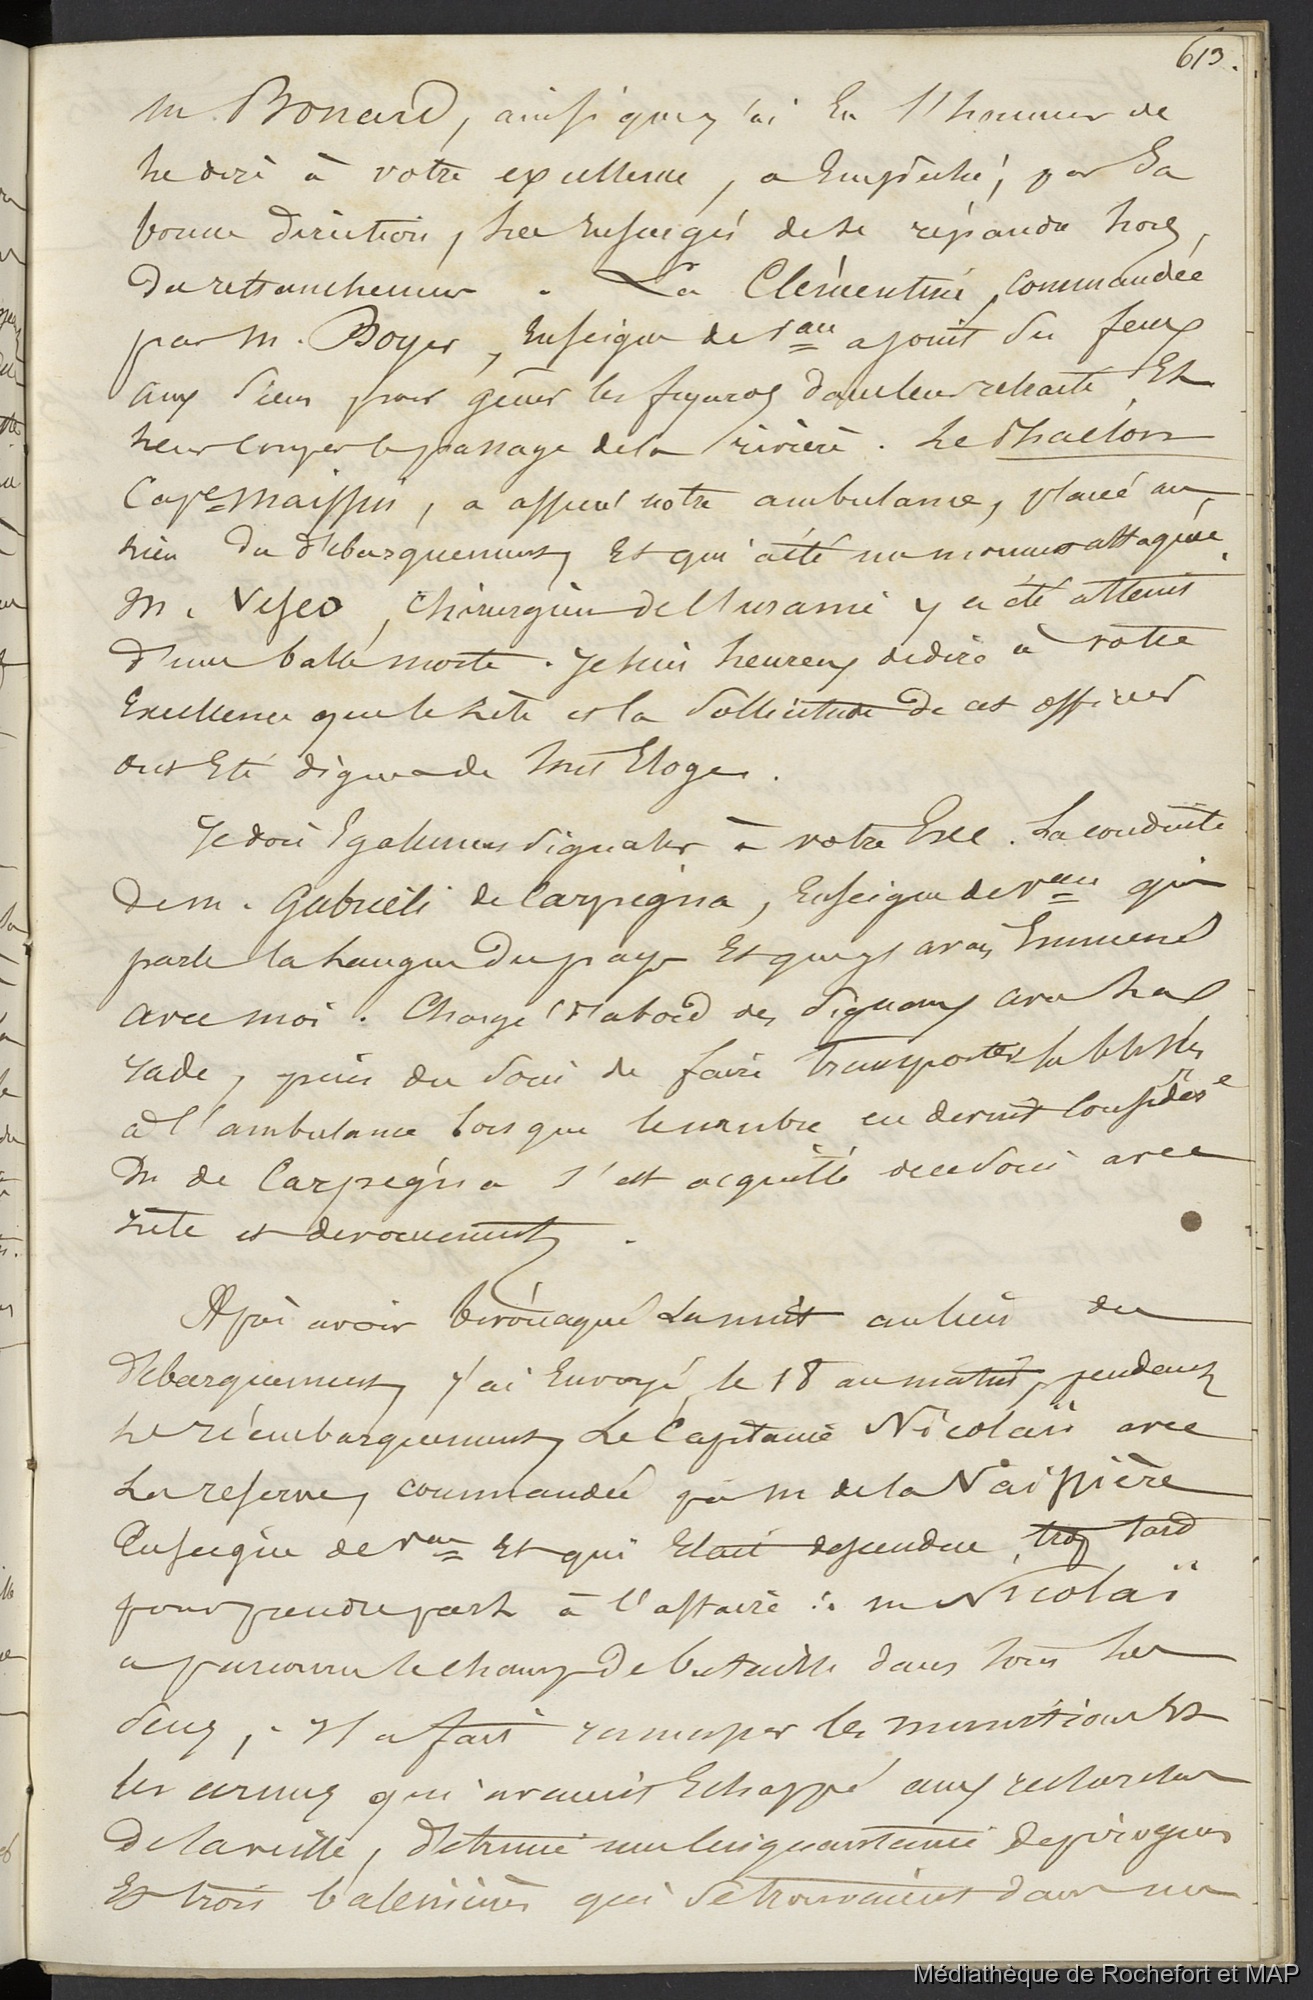 613.
M. Bonard, ainsi que j'ai Eu l'honneur de
le dire à votre excellence, a Empêché, par Sa
bonne direction, les insurgés de se répandre hors,
du retranchement. La Clémentine, commandée
par M. Boyer, Enseigne de Vau a joint Ses feux
aux Siens pour gêner les fuyards dans leur retraite Et
leur Couper le passage de la rivière. Le Phaëton
Cape Maissin, a assuré notre ambulance, placée au
lieu du débarquement, Et qui a été un moment attaquée.
M. Veseo, Chirurgien de l'uranie y a été atteint
d'une balle morte. Je suis heureux de dire à votre
Excellence que le zèle et la Sollicitude de cet officier
ont Eté digne de tous Eloges.
Je dois Egalement Signaler à votre Exce. La conduite
de M. Gabrieli de Carpegna, Enseigne de Vau qui
parle la langue du pays Et que j'avais Emmené
avec moi. Chargé d'abord des Signaux avec la
rade, puis du Soin de faire transporter les blessés
à l'ambulance lorsque le nombre en devint Considére
M de Carpegna s'est acquitté de ce Soin avec
zèle et dévouement.
Après avoir bivouaqué La nuit au lieu du
débarquement, j'ai Envoyé, le 18 au matin, pendant
le réembarquement, Le Capitaine Nicolaï avec
La réserve, commandée par M de la Vaissière
Enseigne de Vau Et qui Etait descendue trop tard
pour prendre part à l'affaire: M Nicolaï
a parcouru le champ de bataille dans tous les
Sens, Il a fait ramasser les munitions Et
les armes qui avaient Echappé aux recherches
de la veille, détruit une Cinquantaine de pirogues
Et trois baleinières qui Se trouvaient dans un
Médiathèque de Rochefort et MAP